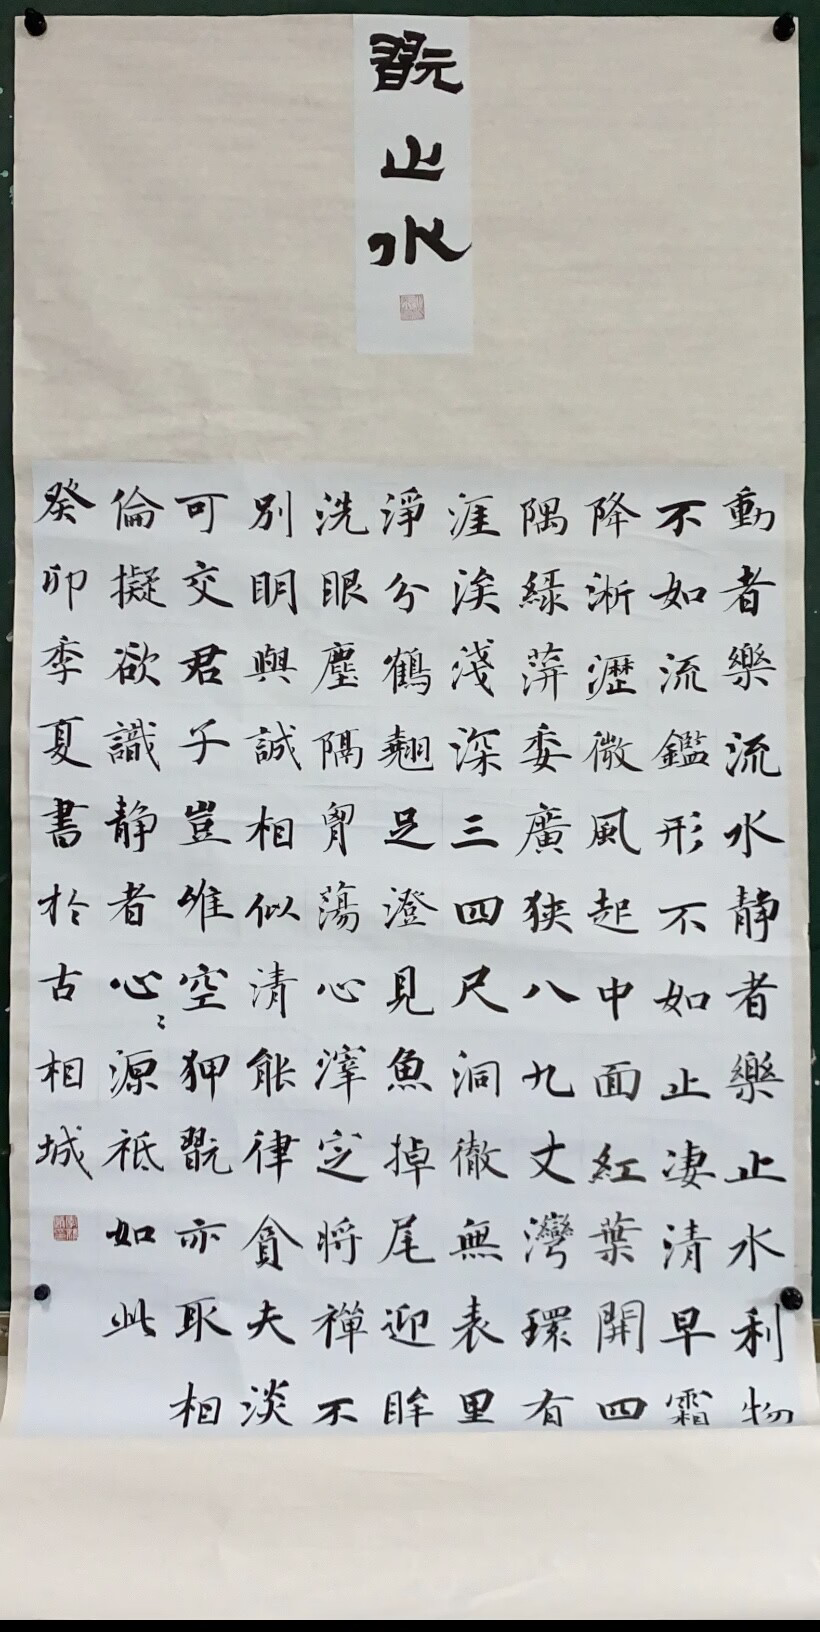 翫止水
動者樂流水静者樂止水利物
不如流鑑形不如止凄清早霜
降淅瀝微風起中面紅葉開四
隅綠萍委廣狹八九丈灣環有
涯涘淺深三四尺洞徹無表里
淨分鶴翹足澄見魚掉尾迎眸
洗眼塵隔胷蕩心滓定将禪不
別明與誠相似清能律貪夫淡
可交君子豈唯空狎翫亦取相
倫擬欲識静者心〻源祗如此
癸卯季夏書於古相城